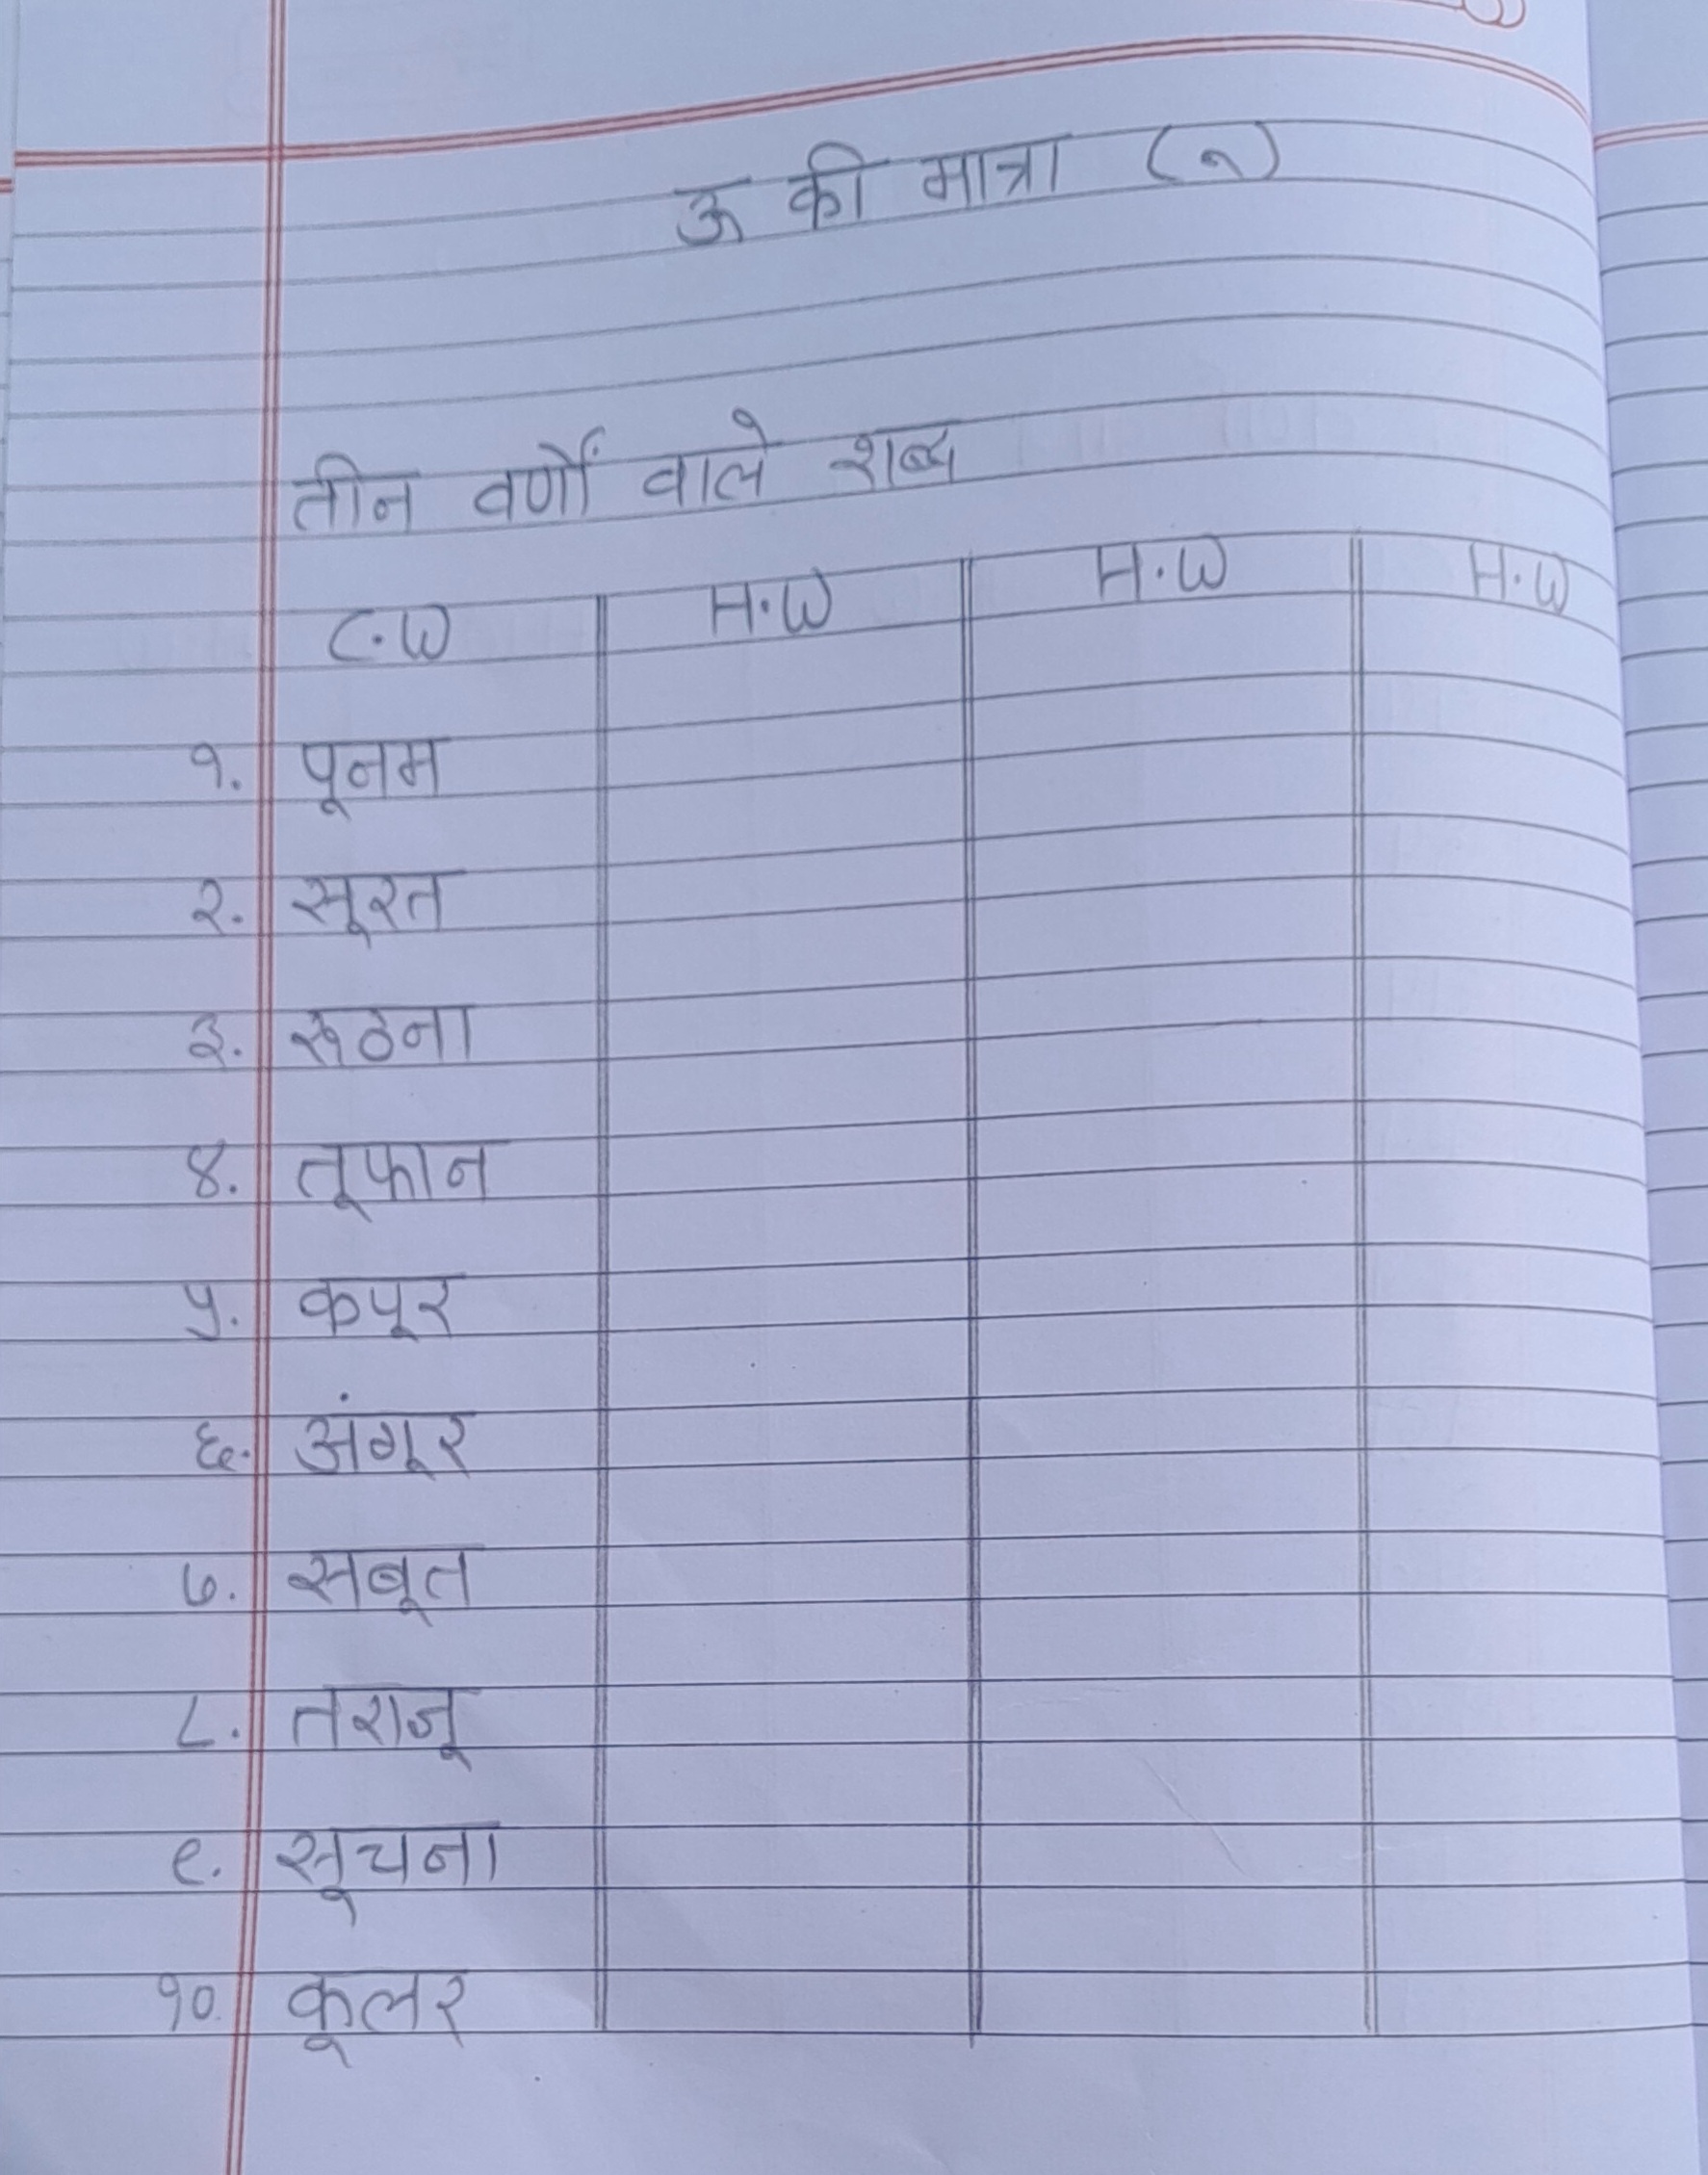 ऊ की मात्रा ( ू )
तीन वर्णों वाले शब्द
C.W H.W H.W H.W
१. पूनम
२. सूरत
३. रूठना
४. तूफान
५. कपूर
६. अंगूर
७. सबूत
८. तराजू
९. सूचना
१०. कूलर